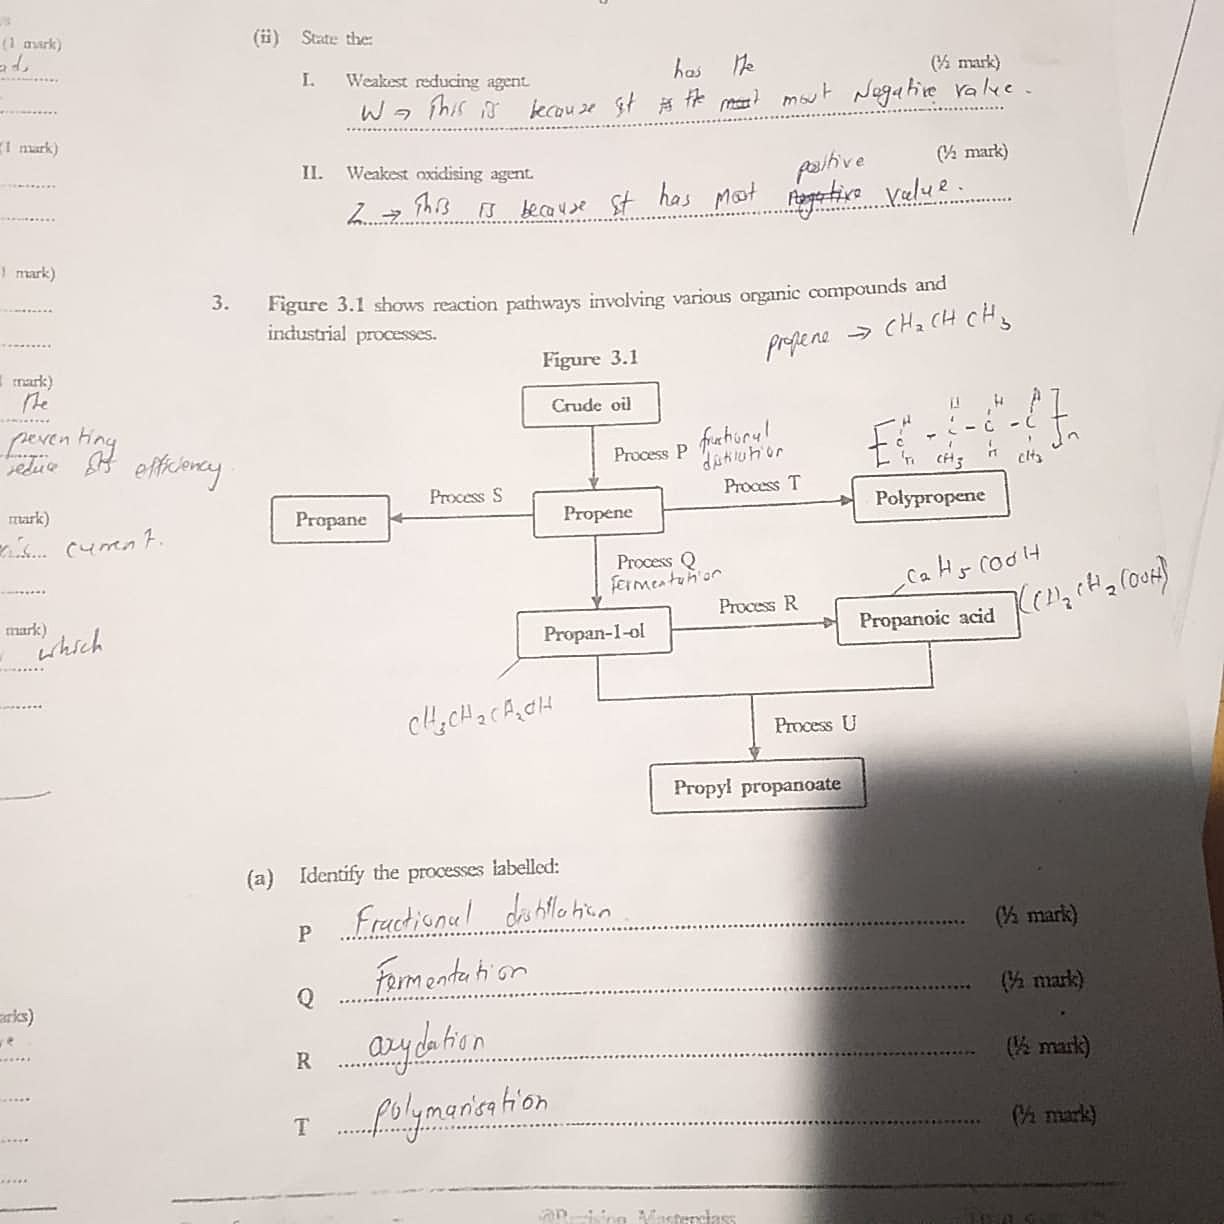 (1 mark)
(ii) State the:
I. Weakest reducing agent. (½ mark)
has the
W → This is because It is the most most Negative value.
(1 mark)
II. Weakest oxidising agent. (½ mark)
positive
Z → This is because It has most Negative value.
mark)
3. Figure 3.1 shows reaction pathways involving various organic compounds and
industrial processes.
propene → CH₂CHCH₃
Figure 3.1
mark)
the
Crude oil
peventing
reduce its efficiency.
Process P
H H H H
[C - C - C - C]n
H CH₃ H CH₃
Process S
Process T
Propane
Propene
Polypropene
mark)
current.
Process Q
Fermentation
C₂H₅COOH
(CH₃CH₂COOH)
Process R
Propan-1-ol
Propanoic acid
mark)
which
CH₃CH₂CH₂OH
Process U
Propyl propanoate
(a) Identify the processes labelled:
P Fractional distillation (½ mark)
Q Fermentation (½ mark)
R oxydation (½ mark)
T polymarisation (½ mark)